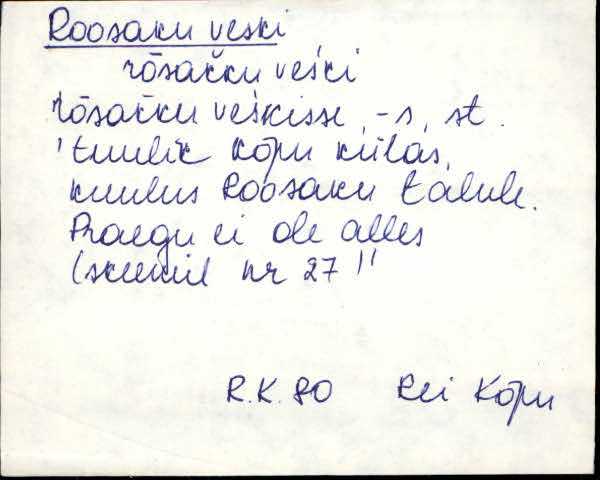 Roosaku veski
rōsaču veśki
rōsaču veśkisse, -s, st.
'tuulik Kõpu külas,
kuulus Roosaku talule.
Praegu ei ole alles
(skeemil nr 27)'
R.K. 80 Rei Kõpu